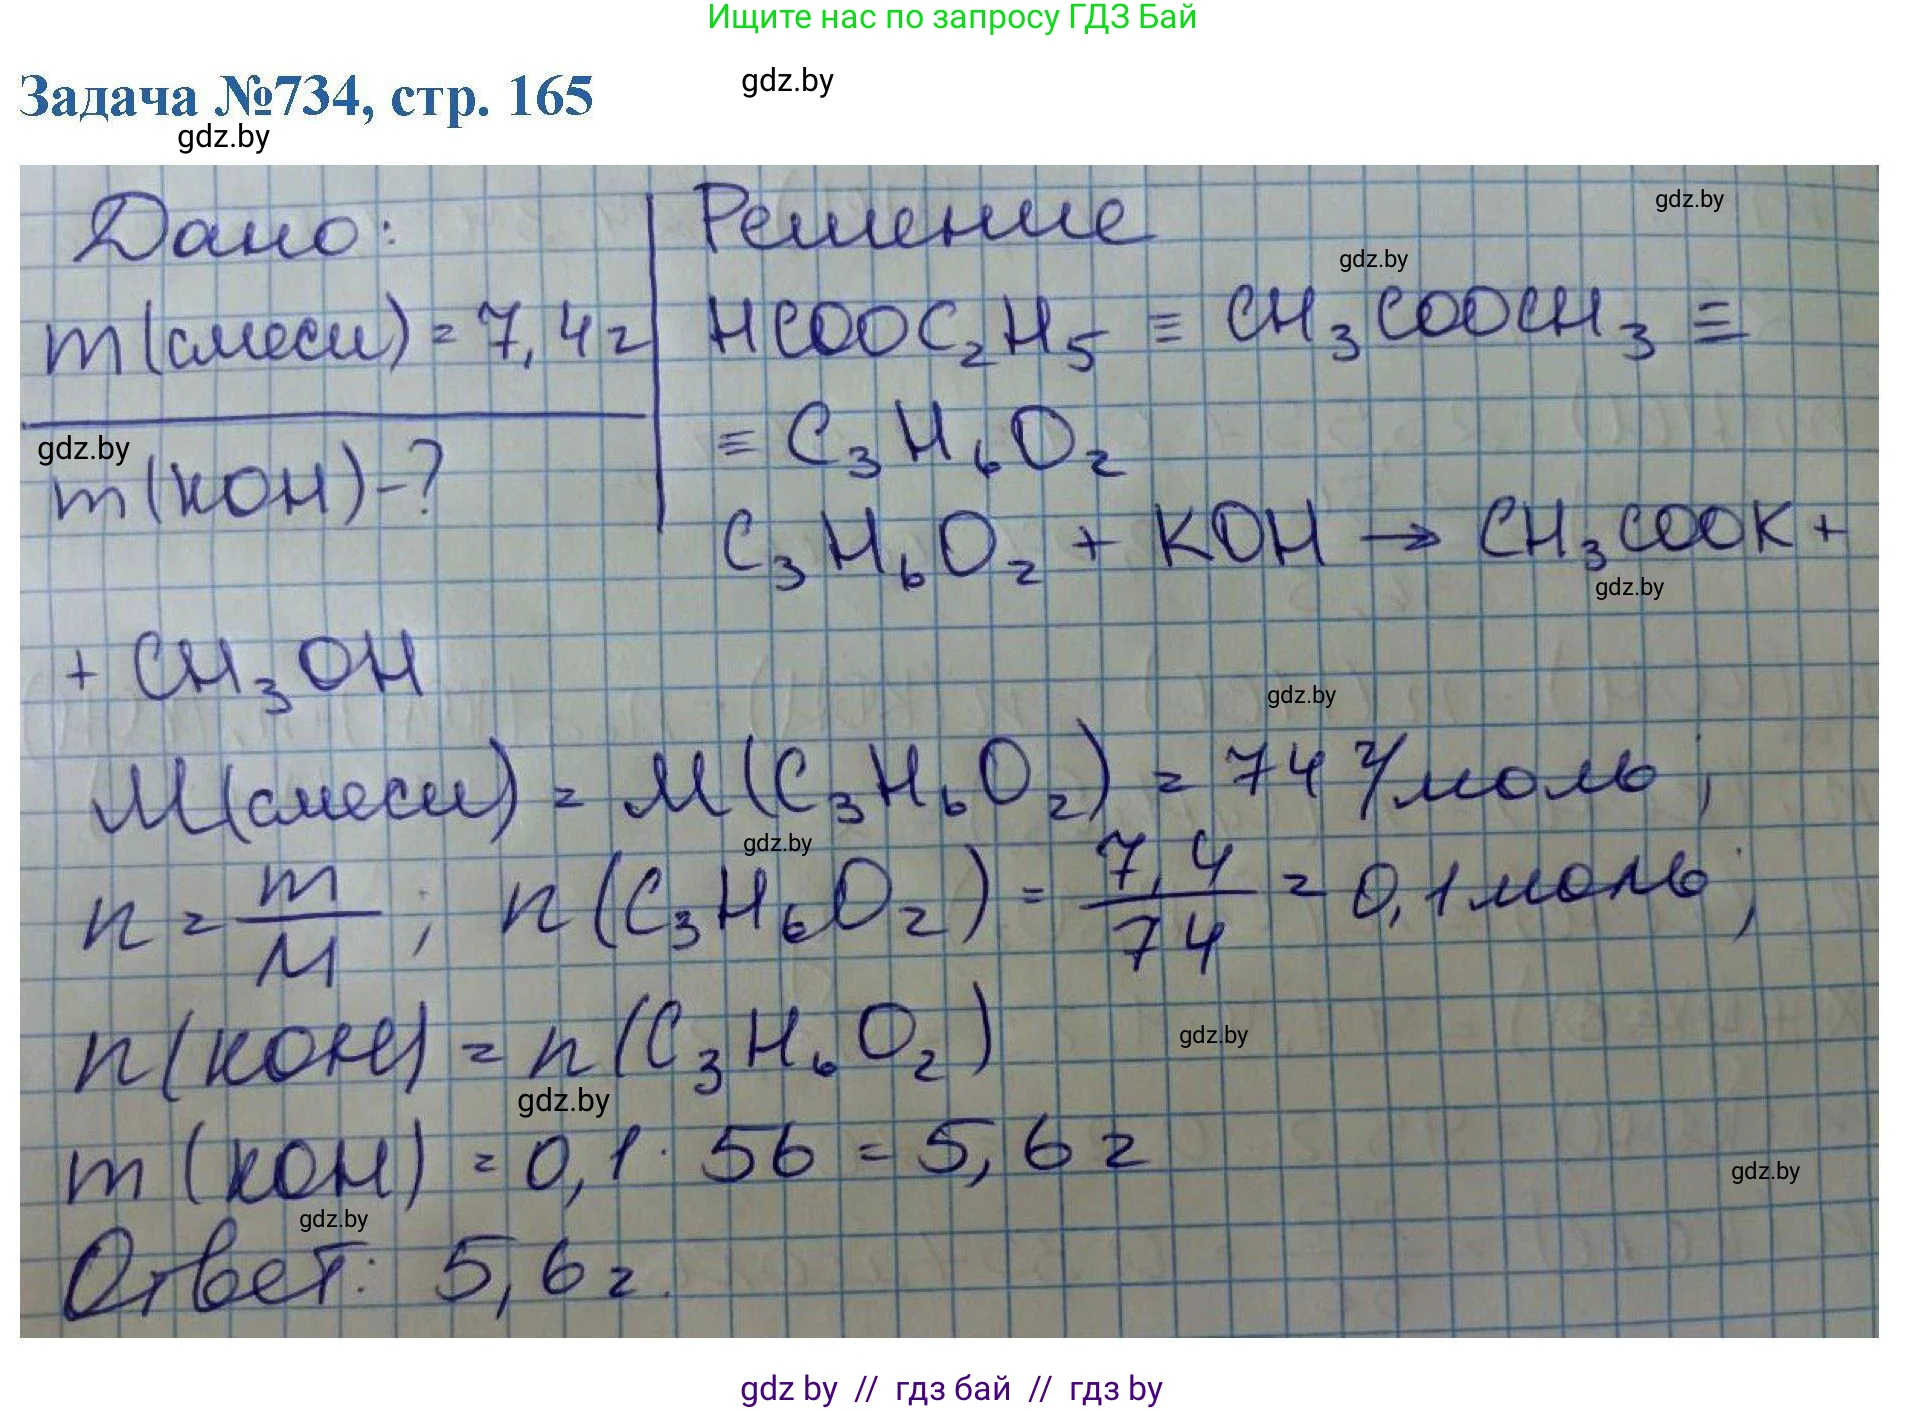 Ищите нас по запросу ГДЗ Бай
Задача №734, стр. 165
gdz.by
gdz.by
Дано:
m(смеси) = 7,4 г
m(KOH) - ?
Решение
HCOOC₂H₅ ≡ CH₃COOCH₃ ≡
≡ C₃H₆O₂
C₃H₆O₂ + KOH → CH₃COOK +
+ CH₃OH
M(смеси) = M(C₃H₆O₂) = 74 г/моль;
n = m/M; n(C₃H₆O₂) = 7,4/74 = 0,1 моль;
n(KOH) = n(C₃H₆O₂)
m(KOH) = 0,1 · 56 = 5,6 г
Ответ: 5,6 г.
gdz.by
gdz.by
gdz.by
gdz.by
gdz.by
gdz.by
gdz.by
gdz.by
gdz.by
gdz.by
gdz by // гдз бай // гдз by